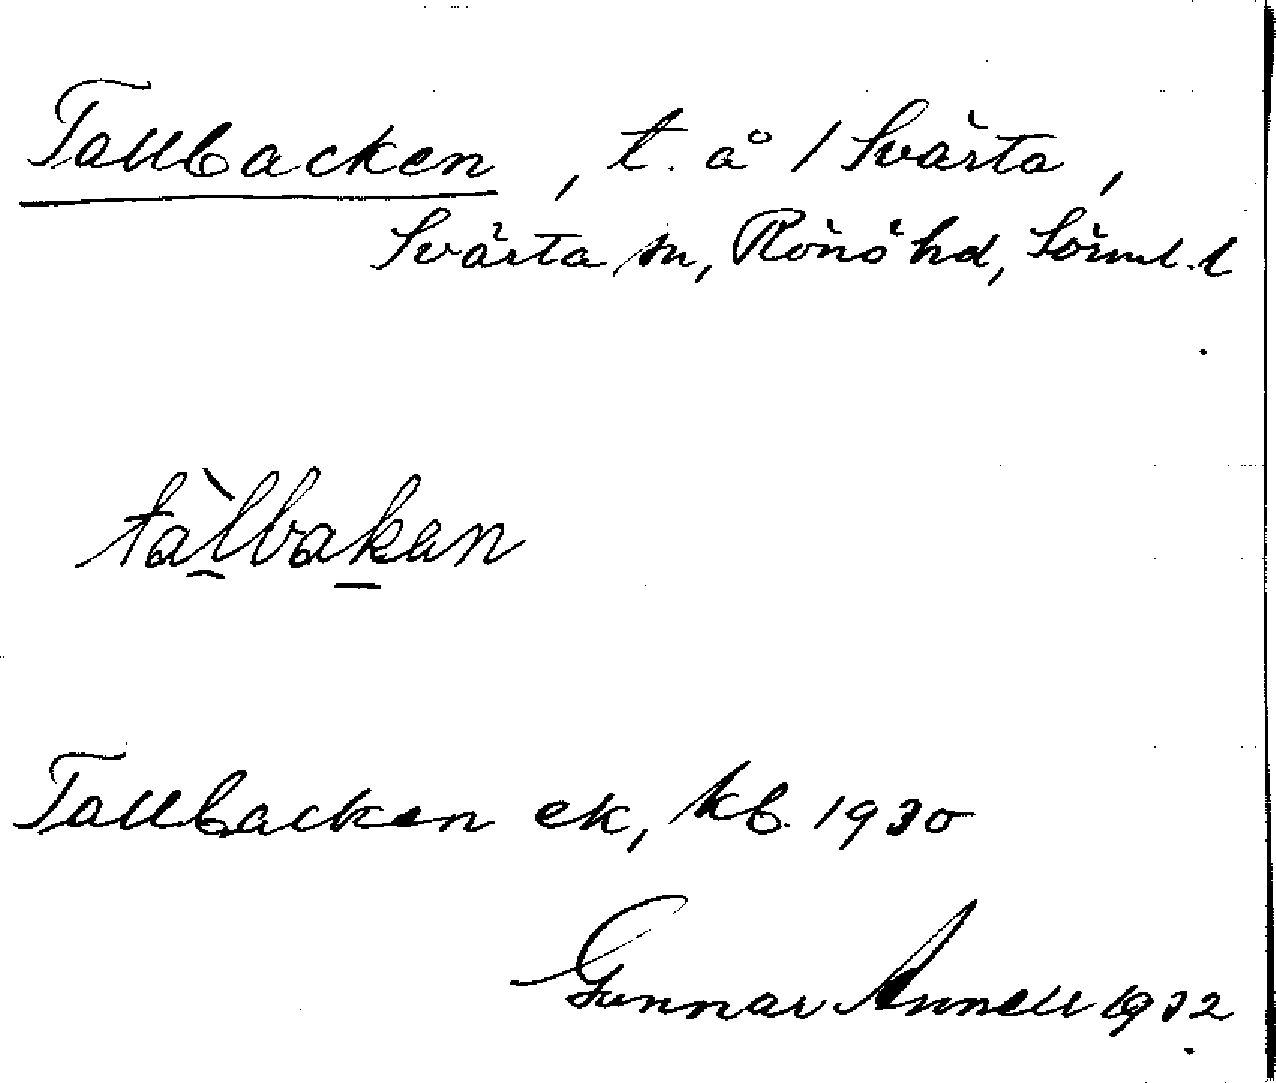 Tallbacken, t. å 1 Svärta,
Svärta sn, Rönö hd, Sörml. l
tàlbakan
Tallbacken ek, kb. 1930
Gunnar Annell 1932